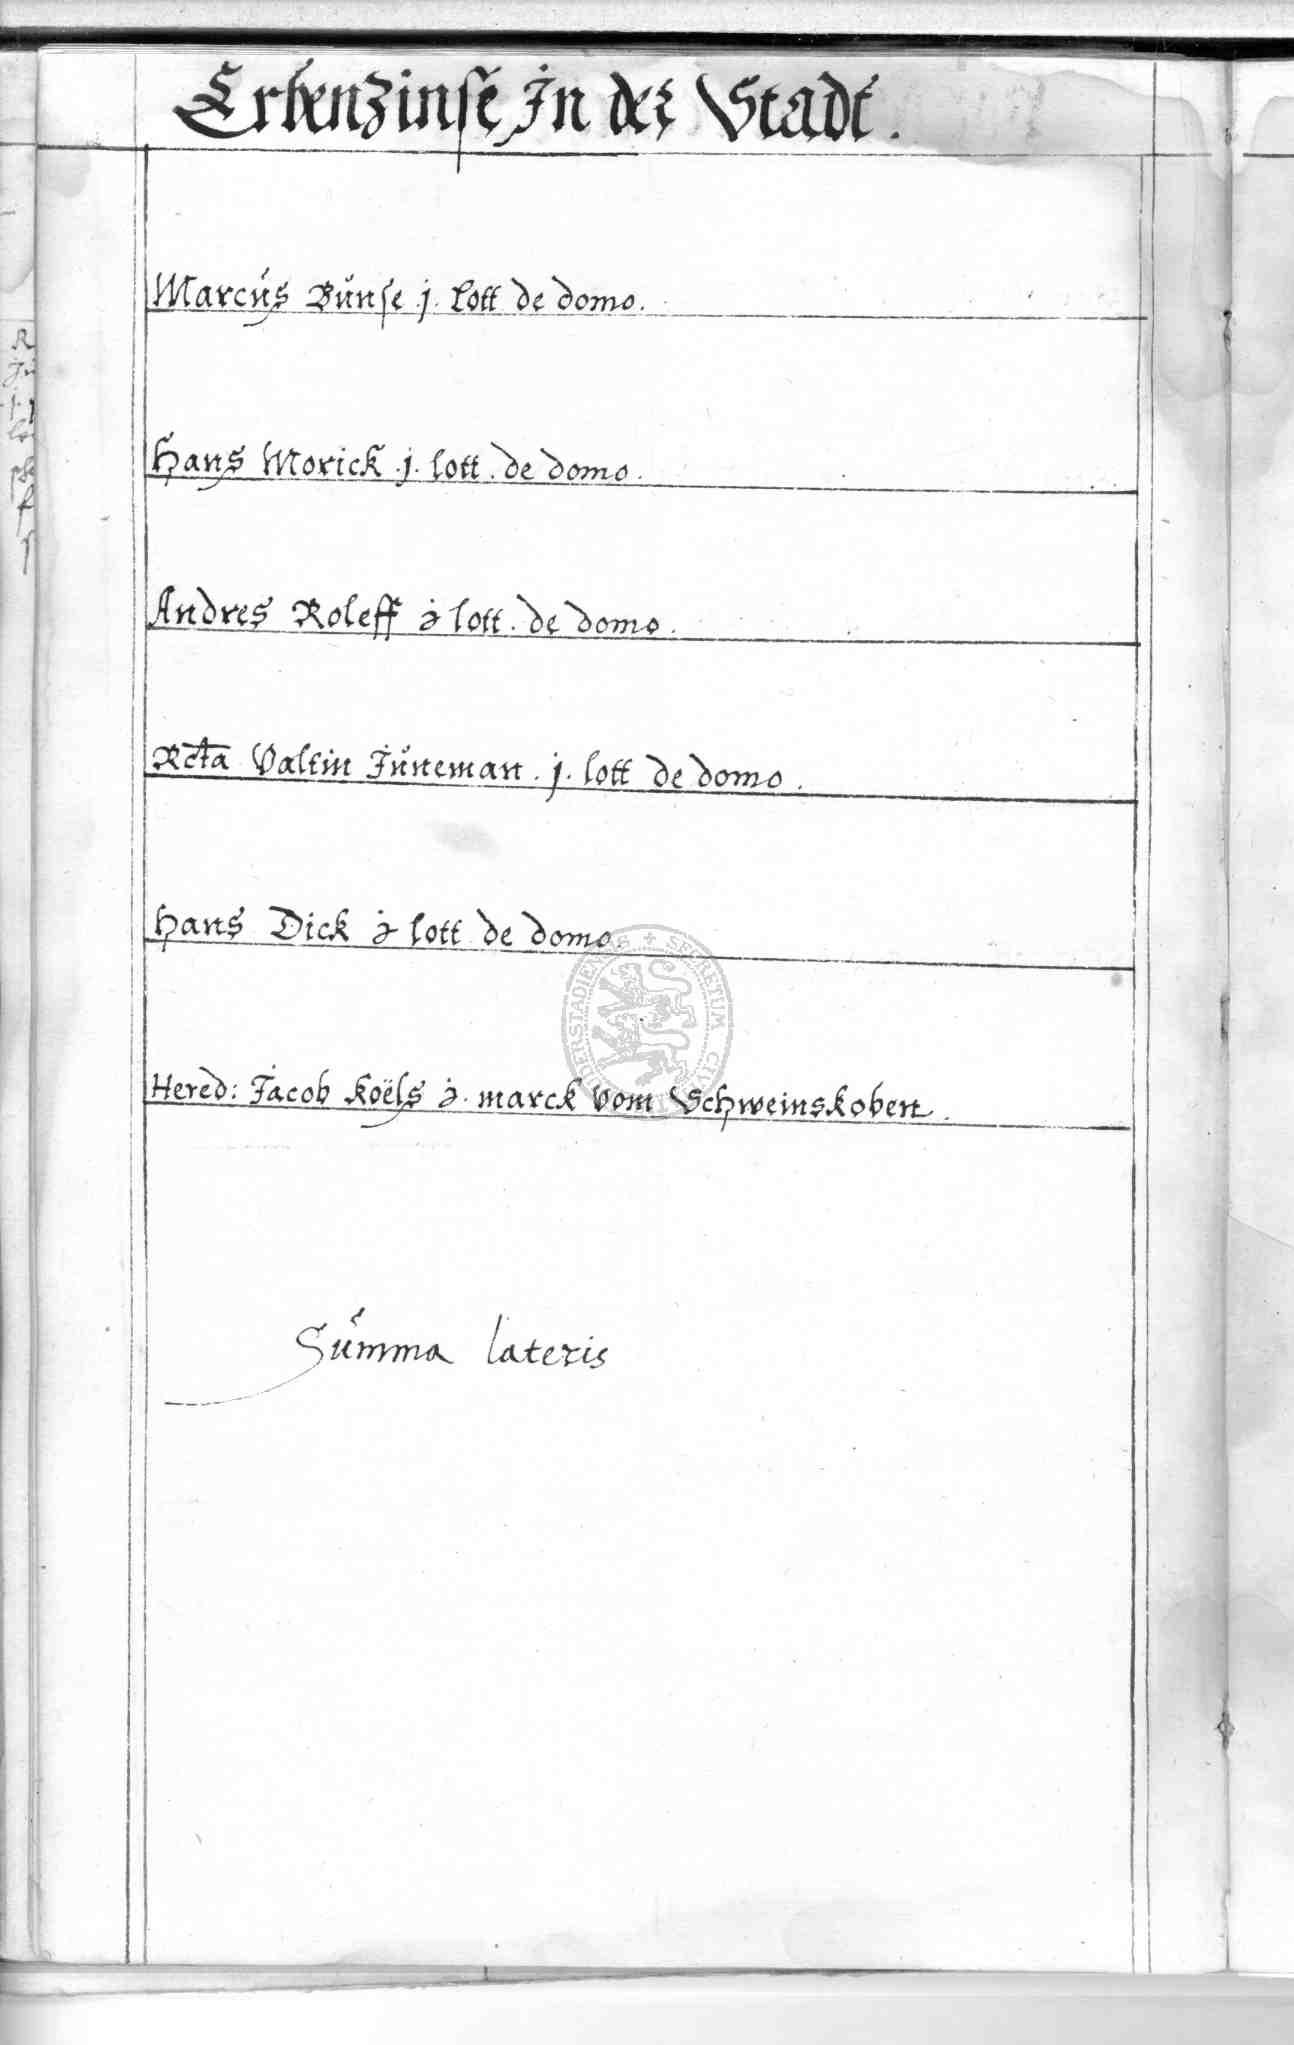 Erbenzinse In der Stadt.
Marcus Bunse j. lott de domo.
Hans Morick .j. lott. de domo.
Andres Roleff lott. de domo.
Rcta Valtin Juneman. j. lott de domo.
Hans Dick lott de domo.
Hered: Jacob Koëls marck vom Schweinskoben.
Summa lateris